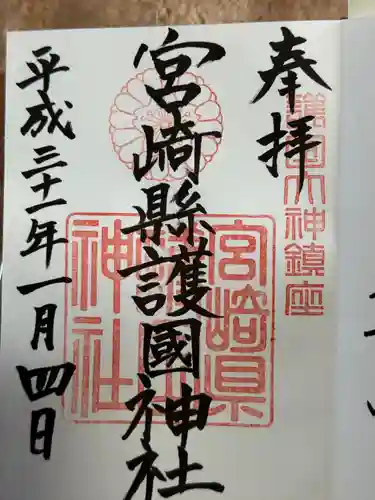 奉拝
護国大神鎮座
宮崎縣護國神社
宮崎県護国神社
平成三十一年一月四日